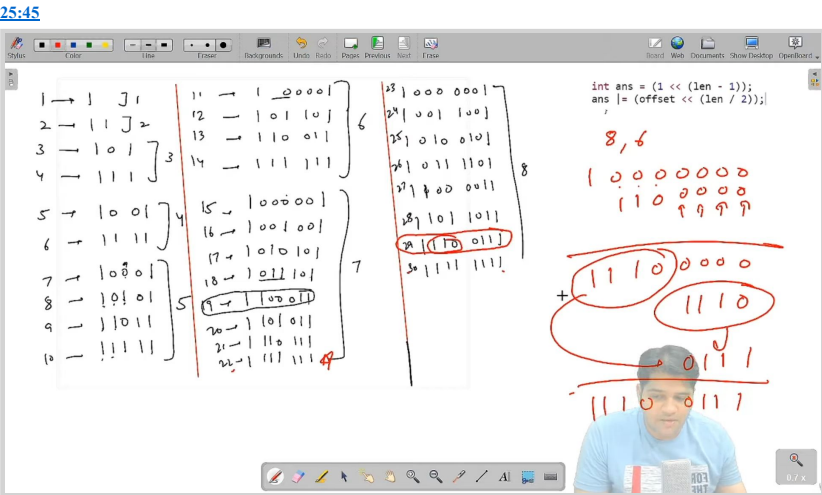 25:45
Stylus
Color
Line
Eraser
Backgrounds
Undo
Redo
Pages
Previous
Next
Erase
Board
Web
Documents
Show Desktop
OpenBoard
1 → 1 ] 1
2 → 1 1 ] 2
3 — 1 0 1
4 — 1 1 1
3
5 → 1 0 0 1
6 → 1 1 1 1
4
7 — 1 0 0 0 1
8 — 1 0 1 0 1
9 — 1 1 0 1 1
10 — 1 1 1 1 1
5
11 → 1 0 0 0 0 1
12 — 1 0 1 1 0 1
13 — 1 1 0 0 1 1
14 — 1 1 1 1 1 1
6
15 → 1 0 0 0 0 0 1
16 → 1 0 0 1 0 0 1
17 → 1 0 1 0 1 0 1
18 → 1 0 1 1 1 0 1
19 → 1 1 0 0 0 1 1
20 → 1 1 0 1 0 1 1
21 → 1 1 1 0 1 1 1
22 → 1 1 1 1 1 1
7
23 1 0 0 0 0 0 0 1
24 1 0 0 1 1 0 0 1
25 1 0 1 0 0 1 0 1
26 1 0 1 1 1 1 0 1
27 1 1 0 0 0 0 1 1
28 1 1 0 1 1 0 1 1
29 1 1 1 0 0 1 1 1
30 1 1 1 1 1 1 1 1
8
int ans = (1 << (len - 1));
ans |= (offset << (len / 2));
;
8, 6
1 0 0 0 0 0 0 0
1 1 0 0 0 0 0
1 1 1 0 0 0 0 0
+
1 1 1 0
0 1 1 1
1 1 1 0 0 1 1 1